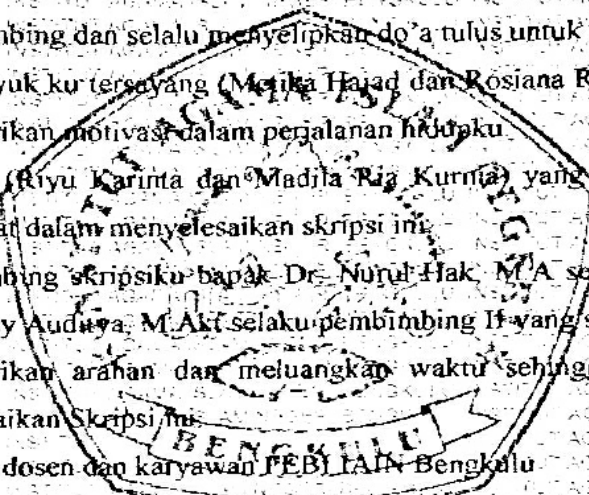 nbing dan selalu menyelipkan do'a tulus untuk
yuk ku tersayang (Metika Hajad dan Rosiana R
rikan motivasi dalam perjalanan hidupku
(Riyu Karinta dan Madila Ria Kurnia) yang
at dalam menyelesaikan skripsi ini
nbing skripsiku bapak Dr. Nurul Hak, M.A se
y Auditya, M.Akt selaku pembimbing II yang s
rikan arahan dan meluangkan waktu sehing
aikan Skripsi ini
dosen dan karyawan FEBI IAIN Bengkulu
AGAMA ISLAM NEG
BENGKULU